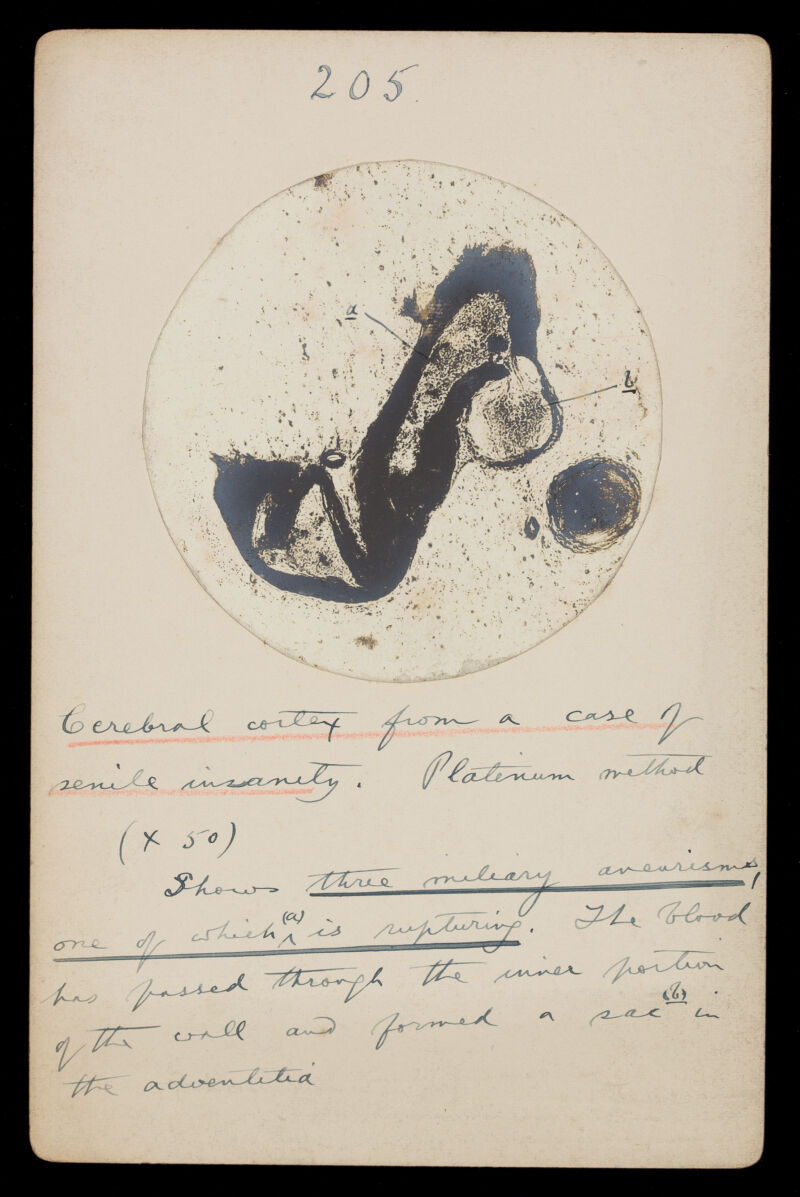 205.
a
b
Cerebral cortex from a case of
senile insanity. Platinum method
(x 50)
Shows three miliary aneurisms,
one of which (a) is rupturing. The blood
has passed through the inner portion
of the wall and formed a sac (b) in
the adventitia